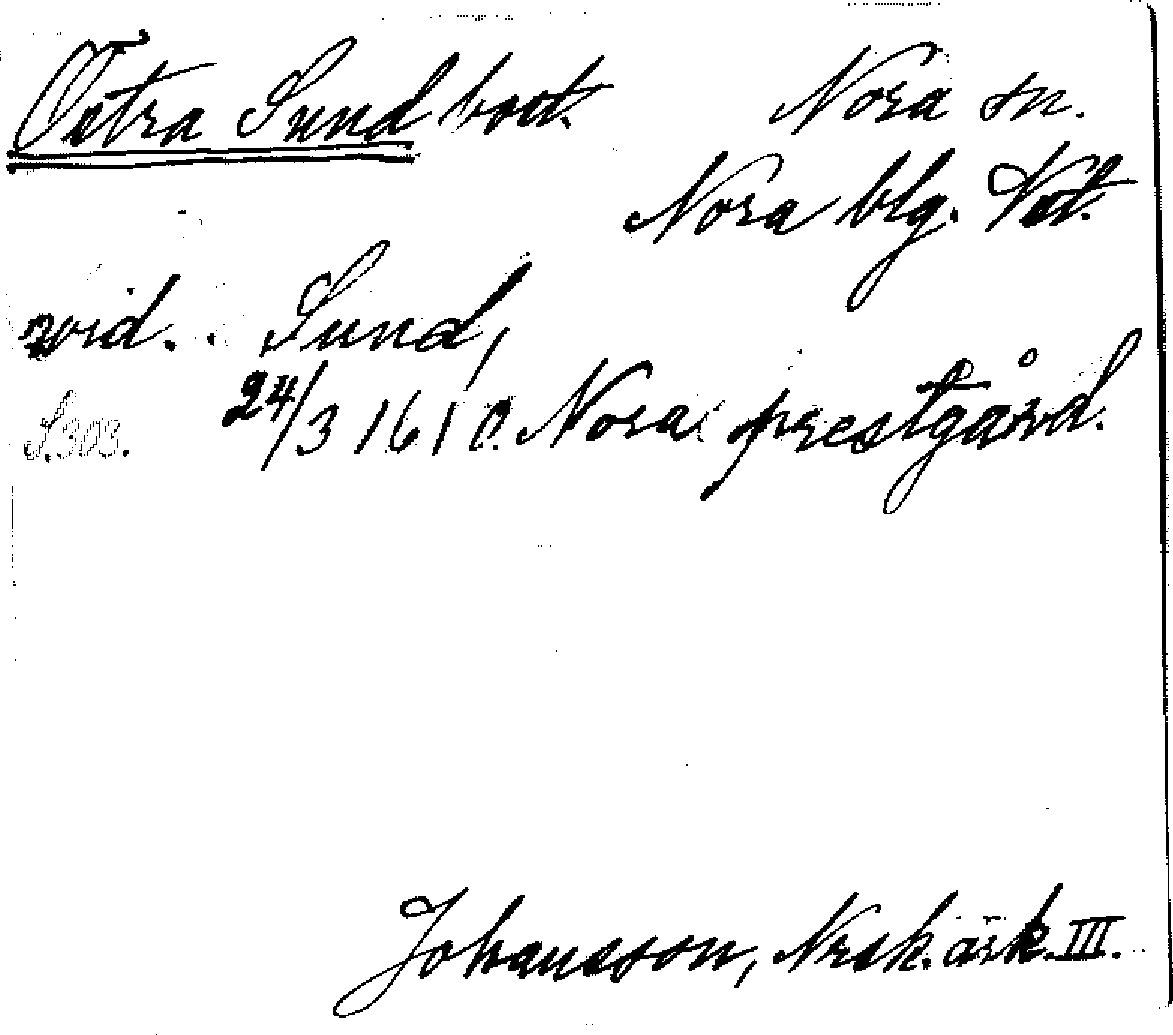 Östra Sund bort.
Nora sn.
Nora blg. Vstl.
vid. Sund,
24/3 1610. Nora prestgård.
S. 303.
Johansson, Nrsk. ark. III.